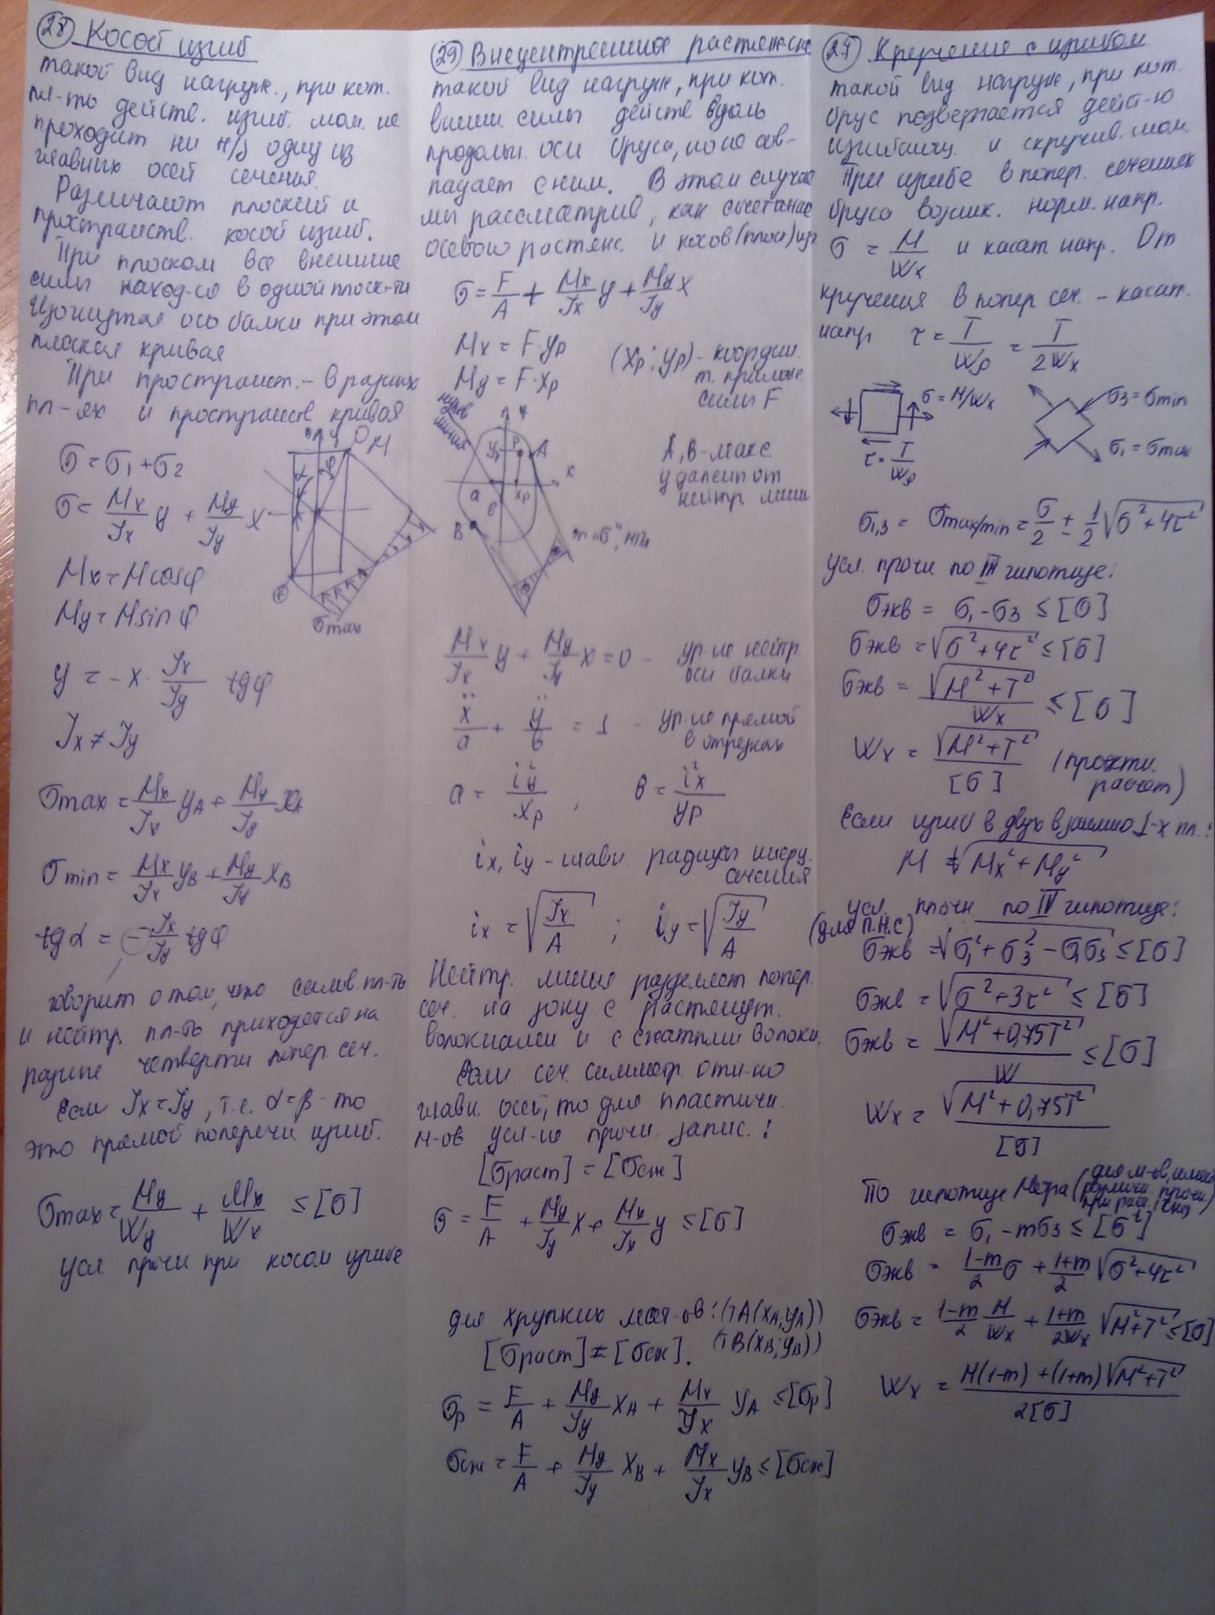 28 Косой изгиб
такой вид нагруж., при кот.
пл-ть действ. изгиб. мом. не
проходит ни ч/з одну из
главных осей сечения.
Различают плоский и
пространств. косой изгиб.
При плоском все внешние
силы наход-ся в одной плоск-ти
Изогнутая ось балки при этом
плоская кривая
При пространст. - в разных
пл-ях и пространств кривая
σ = σ1 + σ2
σ = Mx/Jx y + My/Jy x
Mx = M cosφ
My = M sin φ
y = -x · Jx/Jy tgφ
Jx ≠ Jy
y
M
φ
σmax
σmax = Mx/Jx yA + My/Jy xA
σmin = Mx/Jx yB + My/Jy xB
tgα = - Jx/Jy tgφ
говорит о том, что силов пл-ть
и нейтр. пл-ть приходятся на
разные четверти попер. сеч.
Если Jx = Jy, т.е. α = β - то
это прямой поперечн изгиб.
σmax = My/Wy + Mx/Wx ≤ [σ]
усл. прочн при косом изгибе
29 Внецентренное растяжен
такой вид нагруж, при кот.
внешн силы действ вдоль
продольн. оси бруса, но не сов-
падает с ним. В этом случае
мы рассматрив, как сочетание
осевого растяж. и косов (плоск) изг
σ = F/A + Mx/Jx y + My/Jy x
Mx = F·yp
My = F·xp
(xp; yp) - координ.
т. прилож.
силы F
нейтр
линия
y
yp
P
A
x
a
xp
в
B
A, B - макс
удален от
нейтр. линии
Mx/Jx y + My/Jy x = 0 - ур-ие нейтр.
оси балки
x/a + y/в = 1 - ур-ие прямой
в отрезках
a = iy²/xp , в = ix²/yp
ix, iy - главн. радиусы инерц.
сечения
ix = √Jx/A ; iy = √Jy/A
Нейтр. линия разделяет попер.
сеч. на зону с растянут.
волокнами и с сжатыми волокн.
Если сеч. симметр. отн-но
главн. осей, то для пластичн.
м-ов усл-ие прочн. запис.:
[σраст] = [σсж]
σ = F/A + My/Jy x + Mx/Jx y ≤ [σ]
для хрупких мат-ов: (тA(xA; yA))
[σраст] ≠ [σсж]. (тB(xB; yB))
σp = F/A + My/Jy xA + Mx/Jx yA ≤ [σp]
σсж = F/A + My/Jy xB + Mx/Jx yB ≤ [σсж]
27 Кручение с изгибом
такой вид нагруж, при кот.
брус подвергается дейст-ю
изгибающ. и скручив. мом.
При изгибе в попер. сечениях
бруса возник. норм. напр.
σ = M/Wx и касат напр. От
кручения в попер сеч. - касат.
напр τ = T/Wp = T/2Wx
σ = M/Wx
τ = T/Wp
σ3 = σmin
σ1 = σmax
σ1,3 = σmax/min = σ/2 ± 1/2 √σ² + 4τ²
усл. прочн по III гипотезе:
σэкв = σ1 - σ3 ≤ [σ]
σэкв = √σ² + 4τ² ≤ [σ]
σэкв = √M² + T²/Wx ≤ [σ]
Wx = √M² + T²/[σ] (проектн.
расчет)
Если изгиб в двух взаимно ⊥-х пл.:
M = √Mx² + My²
усл. прочн по IV гипотезе:
(для П.Н.С)
σэкв = √σ1² + σ3² - σ1σ3 ≤ [σ]
σэкв = √σ² + 3τ² ≤ [σ]
σэкв = √M² + 0,75T²/W ≤ [σ]
Wx = √M² + 0,75T²/[σ]
По гипотезе Мора (для м-ов, имею
различн. прочн.
при раст.
σэкв = σ1 - mσ3 ≤ [σ]
σэкв = 1-m/2 σ + 1+m/2 √σ² + 4τ²
σэкв = 1-m/2 M/Wx + 1+m/2Wx √M² + T² ≤ [σ]
Wx = M(1-m) + (1+m)√M² + T²/2[σ]